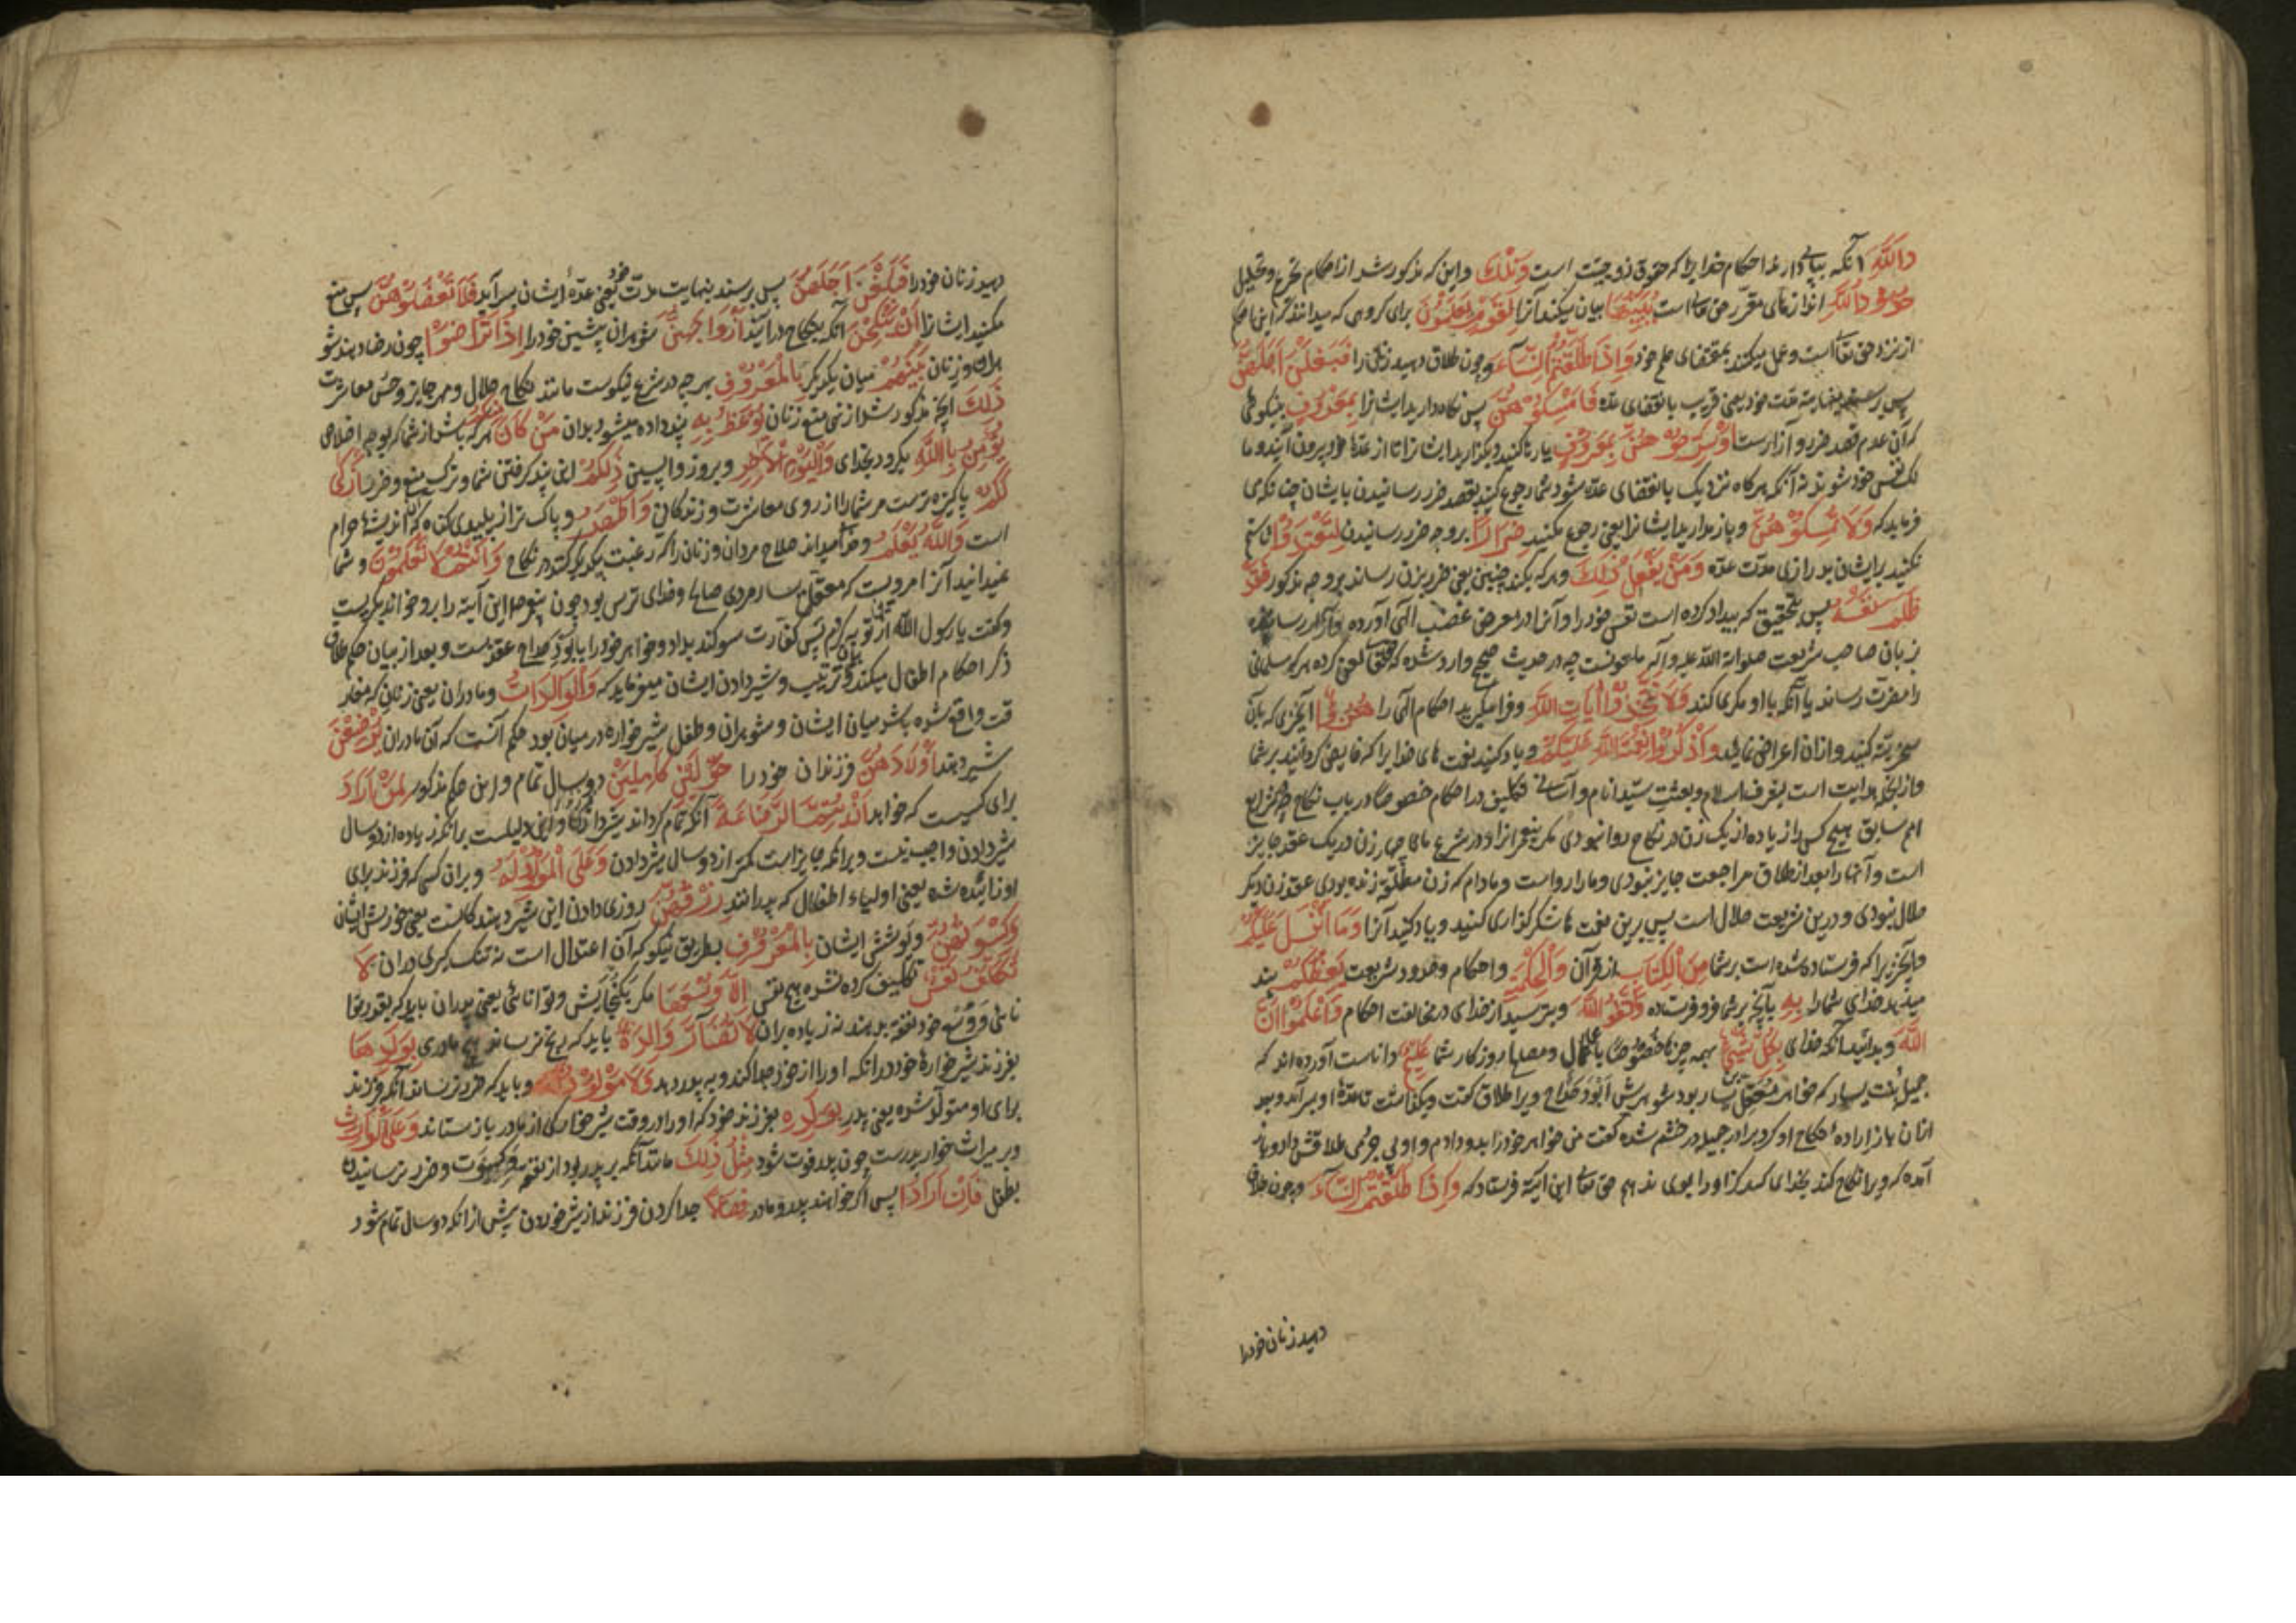 دالله آنکه بپای دارند احکام خدایرا که حقوق زوجیت است وَتِلْكَ واین که مذکور شد از احکام تحریم و تحلیل
حُدُودُ اللَّهِ اندازهای مقرر حق تعالی است يُبَيِّنُهَا بیان میکند آنرا لِقَوْمٍ يَعْلَمُونَ برای گروهی که میدانند که این احکام
از نزد حق تعالی است وعمل میکنند بمقتضای علم خود وَإِذَا طَلَّقْتُمُ النِّسَاءَ وچون طلاق دهید زنان را فَبَلَغْنَ أَجَلَهُنَّ
پس برسند بنهایت مدت خود یعنی قریب بانقضای عده فَأَمْسِكُوهُنَّ پس نگاه دارید ایشانرا بِمَعْرُوفٍ بنیکوئی
که آن عدم قصد ضرر و آزارست أَوْ سَرِّحُوهُنَّ بِمَعْرُوفٍ یا رها کنید وبگذارید ایشانرا تا از عده خود بیرون آیند وما
لک نفس خود شوند نه آنکه هرگاه نزدیک بانقضای عده شود شما رجوع کنید بقصد ضرر رسانیدن بایشان چنانکه می
فرماید که وَلَا تُمْسِكُوهُنَّ وباز مدارید ایشانرا یعنی رجوع مکنید ضِرَارًا بروجه ضرر رسانیدن لِتَعْتَدُوا تا ستم
نکنید برایشان بدرازی مدت عده وَمَنْ يَفْعَلْ ذَلِكَ وهرکه بکند چنین یعنی ضرر بزن رساند بروجه مذکور فَقَدْ
ظَلَمَ نَفْسَهُ پس بتحقیق که بیداد کرده است نفس خود را وآنرا در معرض غضب الهی آورده
زبان صاحب شریعت صلوات الله علیه وآله ملعونست چه در حدیث صحیح وارد شده که لعن کرده هرکه مسلمانی
را مضرت رساند یا آنکه با او مکری کند وَلَا تَتَّخِذُوا آيَاتِ اللَّهِ وفرا مگیرید احکام الهی را هُزُوًا چیزی که بآن
سخریّه کنید وازان اعراض نمائید وَاذْكُرُوا نِعْمَتَ اللَّهِ عَلَيْكُمْ ویاد کنید نعمت های خدایرا که فایض گردانید برشما
وازانجمله هدایت است بشرف اسلام وبعثت سید انام وآسانی تکلیف در احکام خصوصا در باب نکاح چه در شرایع
امم سابق هیچ کس را زیاده از یک زن در نکاح روا نبودی مگر پیغمبرانرا ودر شرع ما چهار زن در یک عقد جایز
است وآنها را بعد از طلاق مراجعت جایز نبودی ومارا رواست ومادام که زن مطلّقه زنده بودی عقد زن دیگر
حلال نبودی ودرین شریعت حلال است پس برین نعمت ها شکرگذاری کنید ویاد کنید آنرا وَمَا أَنْزَلَ عَلَيْكُمْ
وآنچیزیرا که فرستاده شده است برشما مِنَ الْكِتَابِ از قرآن وَالْحِكْمَةِ واحکام وحدود شریعت يَعِظُكُمْ پند
میدهد خدای شمارا بِهِ بآنچه برشما فرو فرستاده وَاتَّقُوا اللَّهَ وبترسید از خدای در مخالفت احکام وَاعْلَمُوا أَنَّ
اللَّهَ وبدانید آنکه خدای بِكُلِّ شَيْءٍ بهمه چیز خصوصا باعمال ومصلحت روزگار شما عَلِيمٌ داناست آورده اند که
جمیل بنت یسار که خواهر معقل بن یسار بود شوهرش ابو دحداح ویرا طلاق گفت وبگذاشت تا عدّه او برآمد وبعد
ازان باز اراده نکاح او کرد برادر جمیله در خشم شده گفت من خواهر خود را بدو دادم واو بی جرمی طلاقش داد وباز
آمده که ویرا نکاح کند بخدای که هرگز او را بوی ندهم حق تعالی این آیت فرستاد که وَإِذَا طَلَّقْتُمُ النِّسَاءَ وچون طلاق
دهید زنان خودرا
دهید زنان خودرا فَبَلَغْنَ أَجَلَهُنَّ پس برسند بنهایت مدت خود یعنی عدّه ایشان بسرآید فَلَا تَعْضُلُوهُنَّ پس منع
مکنید ایشانرا أَنْ يَنْكِحْنَ آنکه بنکاح درآیند أَزْوَاجَهُنَّ شوهران پیشین خودرا إِذَا تَرَاضَوْا چون رضا دهند شو
هران وزنان بَيْنَهُمْ میان یکدیگر بِالْمَعْرُوفِ بهرچه در شرع نیکوست مانند نکاح حلال ومهر جایز وحسن معاشرت
ذَلِكَ آنچه مذکور شد از نهی منع زنان يُوعَظُ بِهِ پند داده میشود بدان مَنْ كَانَ مِنْكُمْ هرکه باشد از شما که بوجه اخلاص
يُؤْمِنُ بِاللَّهِ بگرود بخدای وَالْيَوْمِ الْآخِرِ وبروز واپسین ذَلِكُمْ این پند گرفتن شما وترک منع وضرر أَزْكَى
لَكُمْ پاکیزه ترست مر شمارا از روی معاشرت وزندگانی وَأَطْهَرُ وپاک تر از پلیدی گناه که اندیشه حرام
است وَاللَّهُ يَعْلَمُ وخدا میداند صلاح مردان وزنان را که رغبت یکدیگر کنند در نکاح وَأَنْتُمْ لَا تَعْلَمُونَ وشما
نمیدانید آنرا مرویست که معقل بن یسار مردی صالح وخدای ترس بود چون پیغمبر این آیت را برو خواند بگریست
وگفت یا رسول الله ازین توبه کردم پس کفارت سوگند بداد وخواهر خود را بابو دحداح عقد بست وبعد از بیان حکم طلاق
ذکر احکام اطفال میکند وترتیب وشیر دادن ایشان میفرماید که وَالْوَالِدَاتُ ومادران یعنی زنانی که مفار
قت واقع شده باشد میان ایشان وشوهران وطفل شیرخواره در میان بود حکم آنست که آن مادران يُرْضِعْنَ
شیر دهند أَوْلَادَهُنَّ فرزندان خود را حَوْلَيْنِ كَامِلَيْنِ دو سال تمام واین حکم مذکور لِمَنْ أَرَادَ
برای کسیست که خواهد أَنْ يُتِمَّ الرَّضَاعَةَ آنکه تمام گرداند شیر دادن را واین دلیلست برانکه زیاده از دو سال
شیر دادن واجب نیست وبرانکه جایز است کمتر از دو سال شیر دادن وَعَلَى الْمَوْلُودِ لَهُ وبران کسی که فرزند برای
او زائیده شده یعنی اولیاء اطفال که پدرانند رِزْقُهُنَّ روزی دادن این شیردهندگانست یعنی خورش ایشان
وَكِسْوَتُهُنَّ وپوشش ایشان بِالْمَعْرُوفِ بطریق نیکو که آن اعتدال است نه تنگ گیری دران لَا
تُكَلَّفُ نَفْسٌ تکلیف کرده نشده هیچ نفسی إِلَّا وُسْعَهَا مگر بگنجایش وتوانائی یعنی پدران باید که بقدر توا
نائی و وُسْع خود نفقه بدهند نه زیاده بران لَا تُضَارَّ وَالِدَةٌ باید که رنج نرساند هیچ مادری بِوَلَدِهَا
بفرزند شیرخواره خود در آنکه اورا از خود جدا کند وبه پدر دهد وَلَا مَوْلُودٌ لَهُ وباید که ضرر نرساند آنکه فرزند
برای او متولّد شده یعنی پدر بِوَلَدِهِ بفرزند خود که اورا در وقت شیرخوارگی از مادر باز ستاند وَعَلَى الْوَارِثِ
وبر میراث خوار پدرست چون پدر فوت شود مِثْلُ ذَلِكَ مانند آنکه بر پدر بود از نفقه وکسوت وضرر نرسانیدن
بطفل فَإِنْ أَرَادَا پس اگر خواهند پدر ومادر فِصَالًا جدا کردن فرزند از شیر خوردن پیش ازانکه دو سال تمام شود